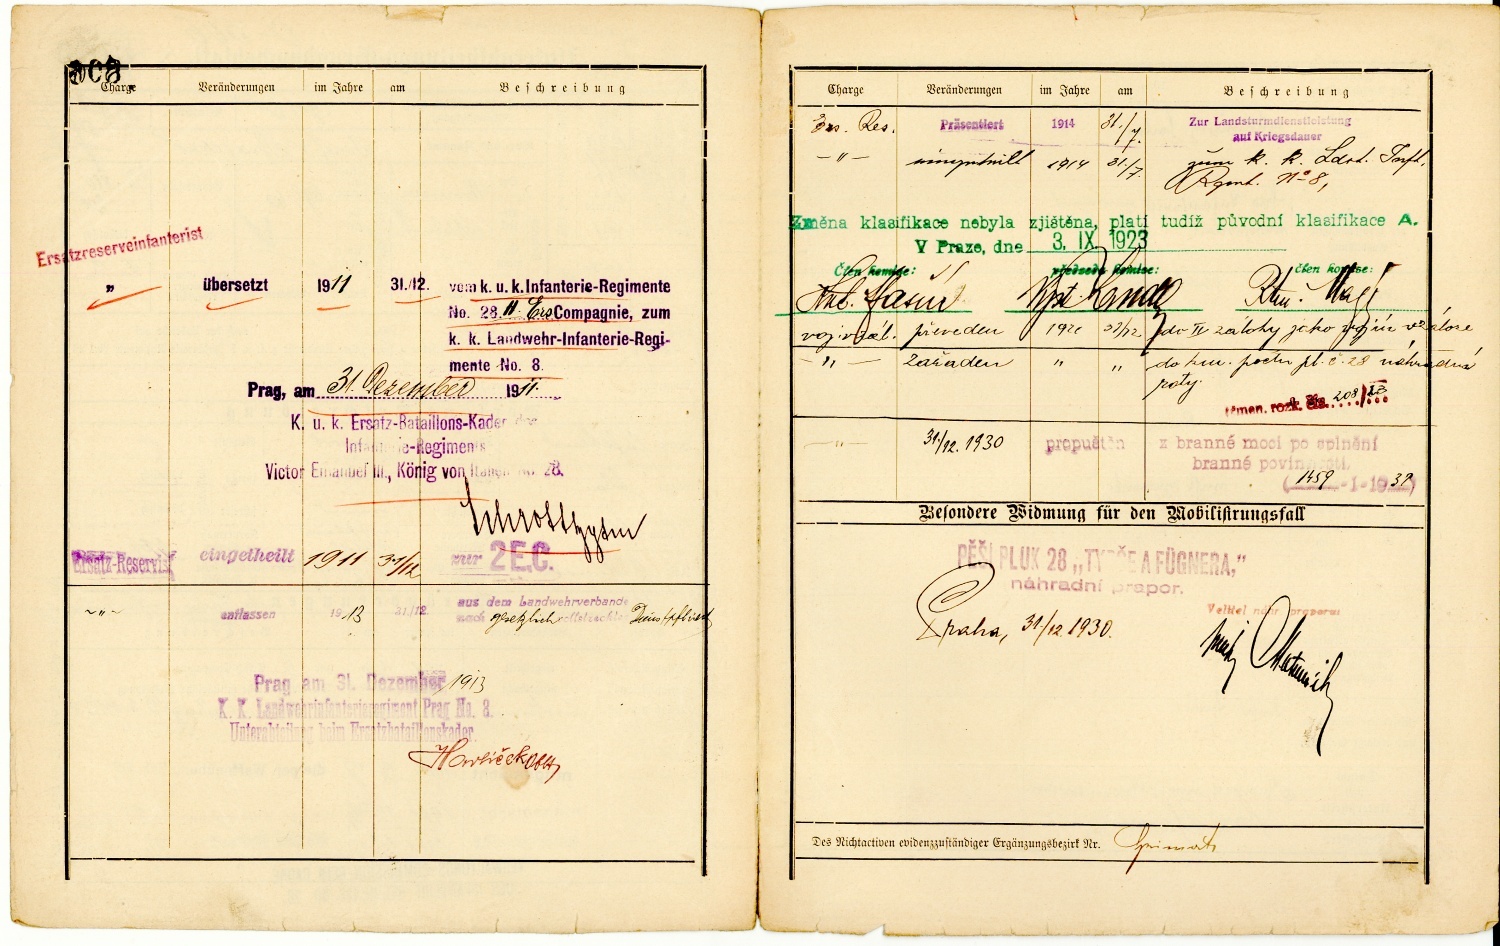 Charge Veränderungen im Jahre am Beschreibung
Ersatzreserveinfanterist
" übersetzt 1911 31./12. vom k. u. k. Infanterie-Regimente
No. 28. 11 Ers Compagnie, zum
k. k. Landwehr-Infanterie-Regi-
mente No. 8.
Prag, am 31. Dezember 1911.
K. u. k. Ersatz-Bataillons-Kader des
Infanterie-Regiments
Victor Emanuel III., König von Italien No. 28.
Ersatz-Reservist eingetheilt 1911 31/12 zur 2 E.C.
~"~ entlassen 1913 31./12. aus dem Landwehrverbande
nach gesetzlich vollstreckter Dienstpflicht
Prag am 31. Dezember 1913
K. K. Landwehrinfanterieregiment Prag No. 8.
Unterabteilung beim Ersatzbataillonskader.
Havlíček Oblt
Charge Veränderungen im Jahre am Beschreibung
Ers. Res. Präsentiert 1914 31./7. Zur Landsturmdienstleistung
auf Kriegsdauer
–"– eingeteilt 1914 31./7. zum k. k. Ldst. Inft.
Rgmt. No 8,
Změna klasifikace nebyla zjištěna, platí tudíž původní klasifikace A.
V Praze, dne 3. IX. 1923
Člen komise: předseda komise: člen komise:
voj. v zál. převeden 31/12 do IV zálohy jako vojín v záloze
–"– zařaden " " do km. počtu pl. č. 28 náhradná
roty.
208/
–"– 31/12. 1930 propuštěn z branné moci po splnění
branné povinnosti.
(1459 -1-1931)
Besondere Widmung für den Mobilisirungsfall
PĚŠÍ PLUK 28 „TYRŠE A FÜGNERA,"
náhradní prapor.
Praha, 31/12 1930.
Velitel náhr praporu:
Des Nichtactiven evidenzzuständiger Ergänzungsbezirk Nr.